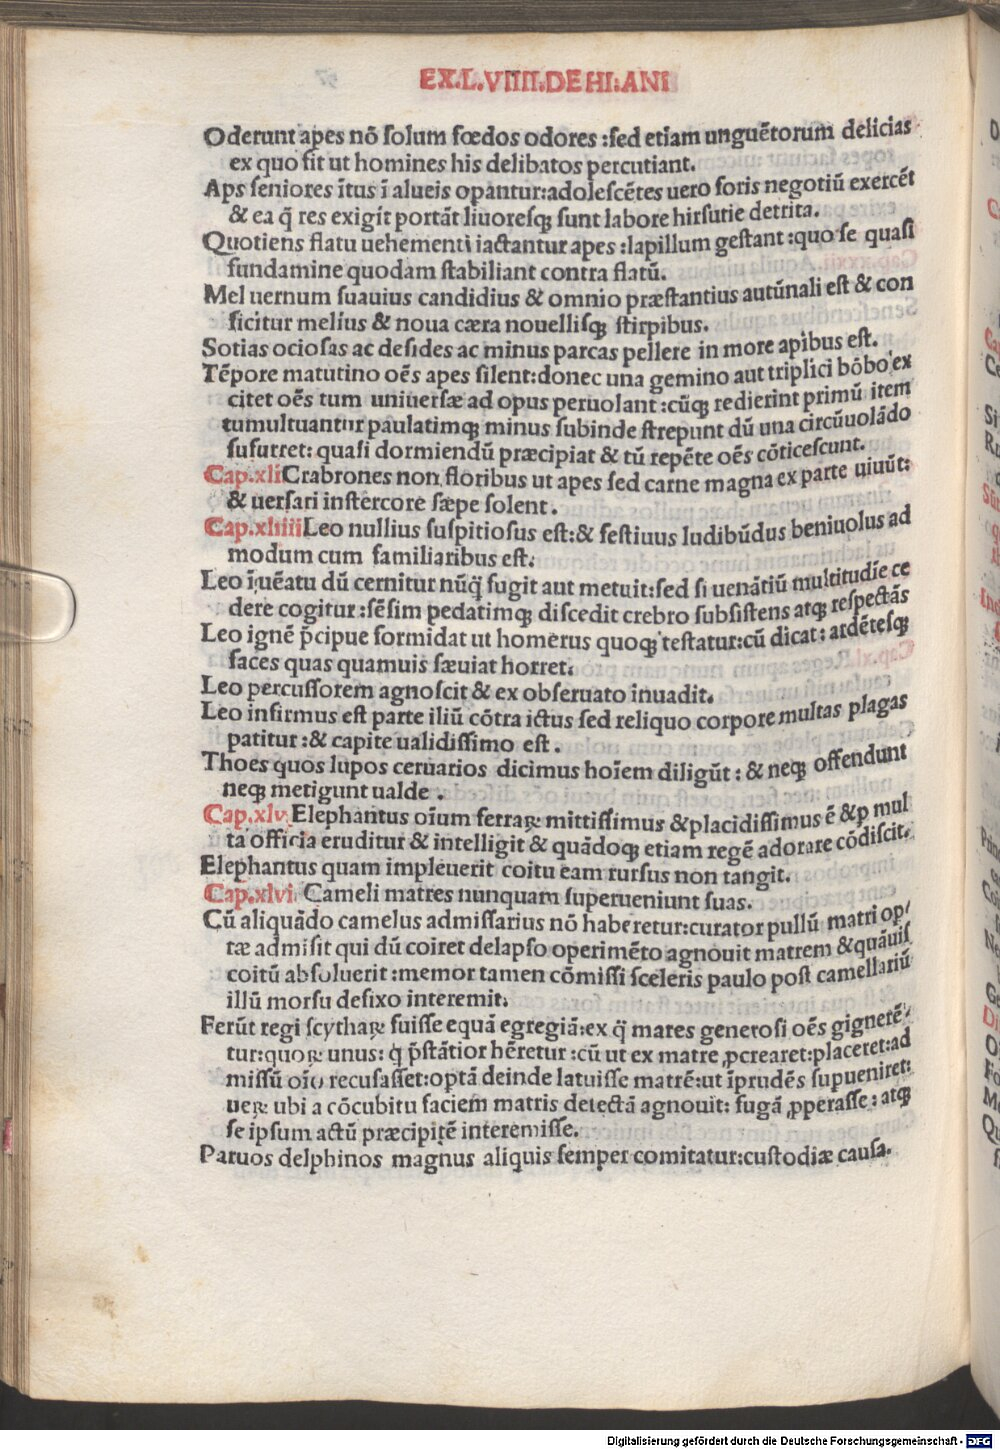 EX.L.VIIII.DE HI:ANI
Oderunt apes nō ſolum fœdos odores :ſed etiam unguētorum delicias
ex quo fit ut homines his delibatos percutiant.
Aps ſeniores ītus ī alueis opantur:adoleſcētes uero foris negotiū exercēt
& ea q̄ res exigit portāt liuoreſqꝫ ſunt labore hirſutie detrita.
Quotiens flatu uehementi iactantur apes :lapillum geſtant :quo ſe quaſi
fundamine quodam ſtabiliant contra flatū.
Mel uernum ſuauius candidius & omnio præſtantius autūnali eſt & con
ficitur melius & noua cæra nouelliſqꝫ ſtirpibus.
Sotias ocioſas ac deſides ac minus parcas pellere in more apibus eſt.
Tēpore matutino oēs apes ſilent:donec una gemino aut triplici bōbo ex
citet oēs tum uniuerſæ ad opus peruolant :cūqꝫ redierint primū item
tumultuantur paulatimqꝫ minus ſubinde ſtrepunt dū una circūuolādo
ſuſurret: quaſi dormiendū præcipiat & tū repēte oēs cōticeſcunt.
Cap.xliCrabrones non floribus ut apes ſed carne magna ex parte uiuūt:
& uerſari inſtercore ſæpe ſolent.
Cap.xliiiiLeo nullius ſuſpitioſus eſt:& feſtiuus ludibūdus beniuolus ad
modum cum familiaribus eſt.
Leo īuēatu dū cernitur nūq̄ fugit aut metuit:ſed ſi uenātiū multitudīe ce
dere cogitur :ſēſim pedatimqꝫ diſcedit crebro ſubſiſtens atqꝫ reſpectās
Leo ignē p̄cipue formidat ut homerus quoqꝫ teſtatur:cū dicat: ardēteſqꝫ
faces quas quamuis ſæuiat horret.
Leo percuſſorem agnoſcit & ex obſeruato inuadit.
Leo infirmus eſt parte iliū cōtra ictus ſed reliquo corpore multas plagas
patitur :& capite ualidiſſimo eſt.
Thoes quos lupos ceruarios dicimus hoīem diligūt : & neqꝫ offendunt
neqꝫ metigunt ualde .
Cap.xlv.Elephantus oīum ferraꝝ mittiſſimus & placidiſſimus ē & ꝑ mul
ta officia eruditur & intelligit & quādoqꝫ etiam regē adorare cōdiſcit.
Elephantus quam impleuerit coitu eam rurſus non tangit.
Cap.xlvi Cameli matres nunquam ſuperueniunt ſuas.
Cū aliquādo camelus admiſſarius nō haberetur:curator pullū matri op/
tæ admiſit qui dū coiret delapſo operimēto agnouit matrem & quāuis
coitū abſoluerit :memor tamen cōmiſſi ſceleris paulo poſt camellariū
illū morſu defixo interemit.
Ferūt regi ſcythaꝝ fuiſſe equā egregiā:ex q̄ mares generoſi oēs gignerē/
tur:quoꝝ unus: q̄ p̄ſtātior hēretur :cū ut ex matre ꝓcrearet:placeret:ad
miſſū oīo recuſaſſet:optā deinde latuiſſe matrē:ut īprudēs ſupueniret:
ueꝝ ubi a cōcubitu faciem matris detectā agnouit: fugā ꝓperaſſe : atqꝫ
ſe ipſum actū præcipitē interemiſſe.
Paruos delphinos magnus aliquis ſemper comitatur:cuſtodiæ cauſa.
Digitalisierung gefördert durch die Deutsche Forschungsgemeinschaft - DFG